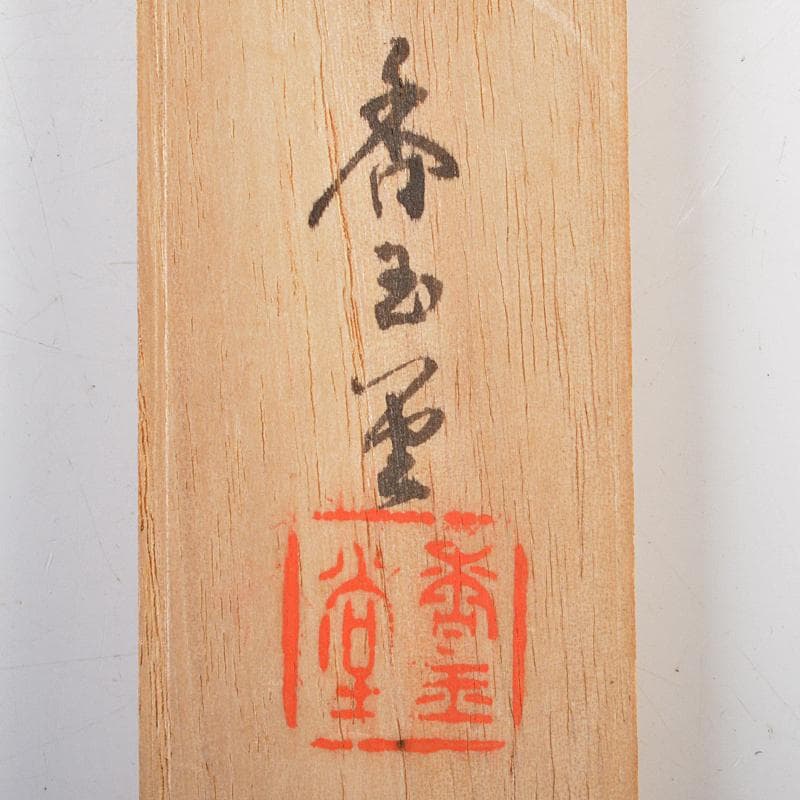 香玉堂
香玉
堂